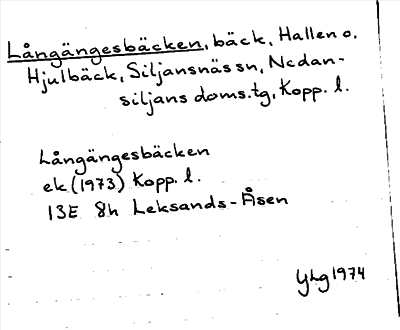 Långängesbäcken, bäck, Hallen o.
Hjulbäck, Siljansnäs sn, Nedan-
siljans doms.tg, Kopp. l.
Långängesbäcken
ek (1973) Kopp. l.
13E 8h Leksands-Åsen
YLg 1974